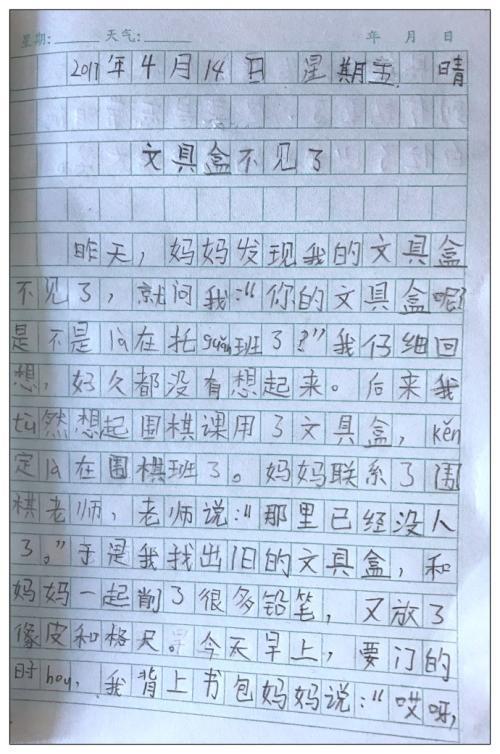 星期：______ 天气：______ 年 月 日
2017年4月14日 星期五 晴
文具盒不见了
昨天，妈妈发现我的文具盒
不见了，就问我：“你的文具盒呢？
是不是là在托guǎn班了？”我仔细回
想，好久都没有想起来。后来我
tū然想起围棋课用了文具盒，kěn
定là在围棋班了。妈妈联系了围
棋老师，老师说：“那里已经没人
了。”于是我找出旧的文具盒，和
妈妈一起削了很多铅笔，又放了
像皮和格尺。今天早上，要门的
时hou，我背上书包妈妈说：“哎呀，